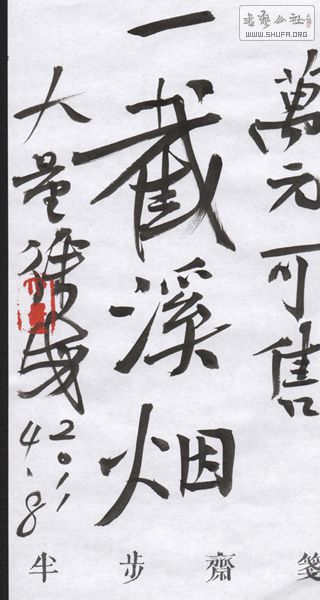 書藝公社
WWW.SHUFA.ORG
萬元可售
一截溪烟
大量
2011
4.8
半步齋箋